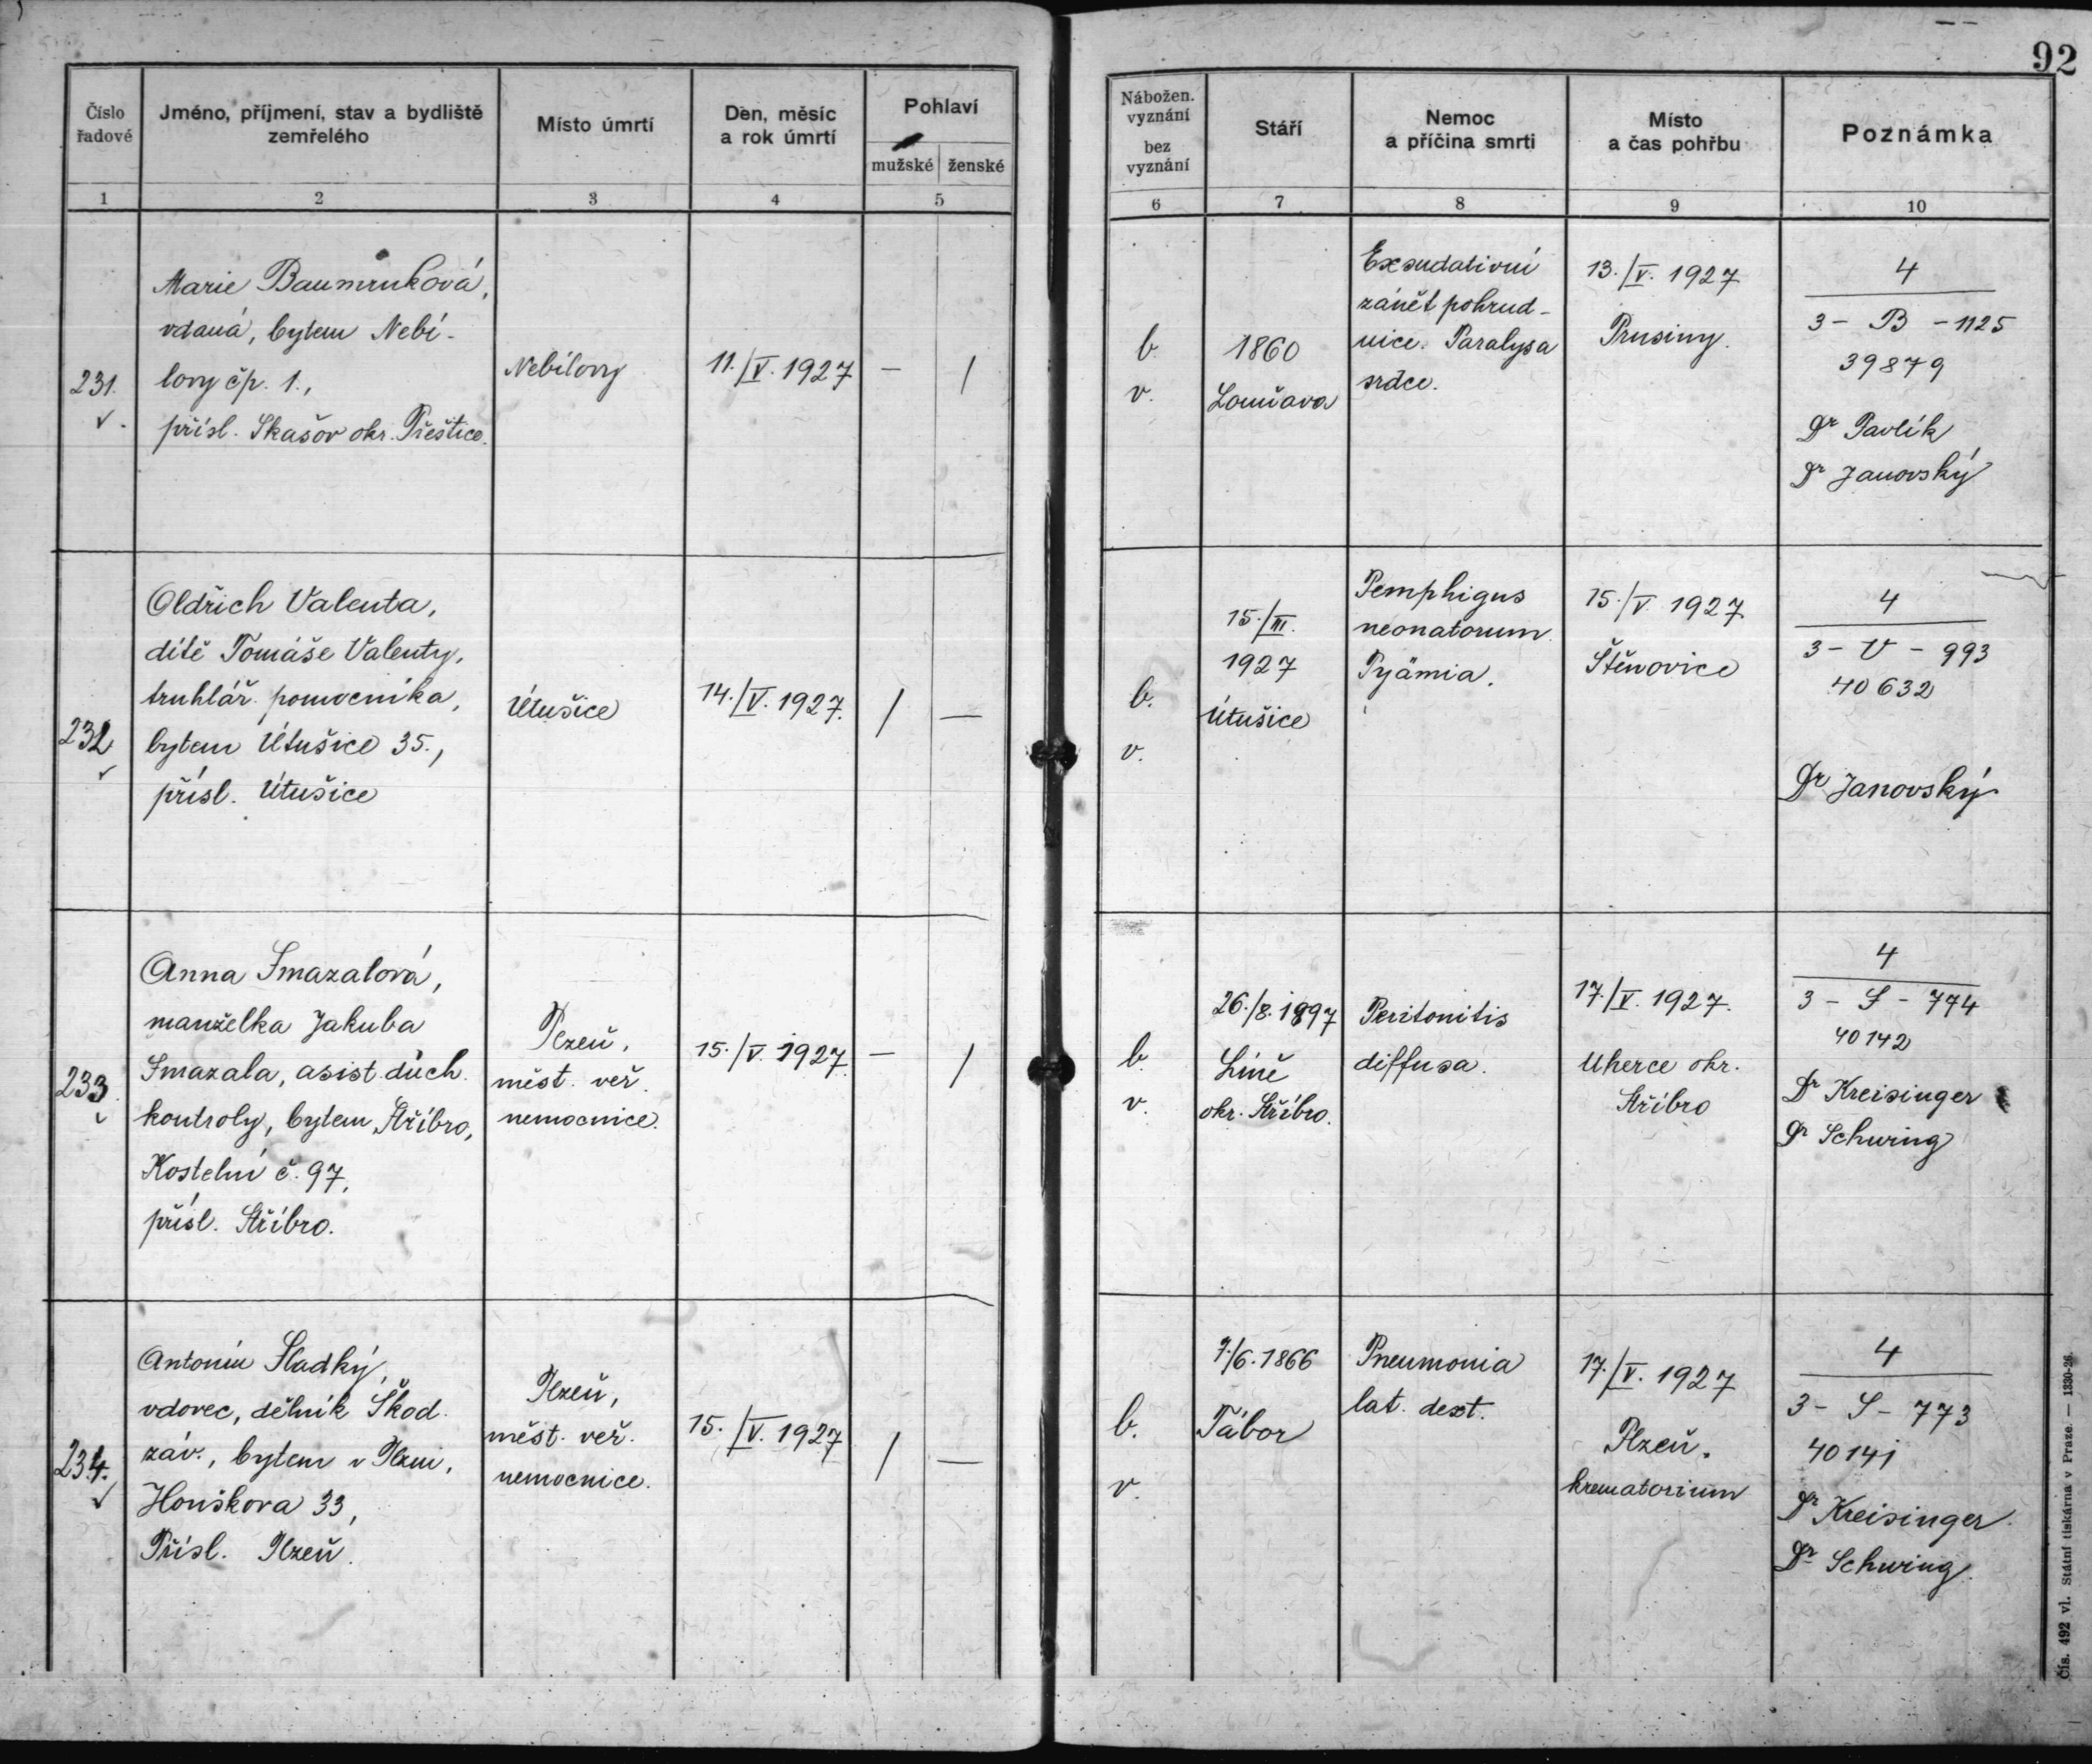 92
Číslo
řadové
Jméno, příjmení, stav a bydliště
zemřelého
Místo úmrtí
Den, měsíc
a rok úmrtí
Pohlaví
mužské ženské
Nábožen.
vyznání
bez
vyznání
Stáří
Nemoc
a příčina smrti
Místo
a čas pohřbu
Poznámka
1 2 3 4 5 6 7 8 9 10
231.
Marie Baumruková,
vdaná, bytem Nebí-
lovy čp. 1.,
přísl. Skašov okr. Přeštice.
Nebílovy
11./V. 1927
— /
b.
v.
1860
Exsudativní
zánět pohrud-
nice. Paralysa
srdce.
13./V. 1927
Prusiny.
4
3 - B - 1125
39879
Dr Pavlík
Dr Janovský
232
Oldřich Valenta,
dítě Tomáše Valenty,
truhlář. pomocníka,
bytem Útušice 35.,
přísl. Útušice
Útušice
14./V. 1927.
/ —
b.
v.
15./III.
1927
Útušice
Pemphigus
neonatorum.
Pyämia.
15./V. 1927
Štěnovice
4
3 - V - 993
40632
Dr Janovský
233.
Anna Smazalová,
manželka Jakuba
Smazala, asist. důch.
kontroly, bytem Stříbro,
Kostelní č. 97,
přísl. Stříbro.
Plzeň,
měst. veř.
nemocnice.
15./V. 1927.
— /
b.
v.
26./8. 1897
Líně
okr. Stříbro.
Peritonitis
diffusa.
17./V. 1927.
Uherce okr.
Stříbro
4
3 - S - 774
40142
Dr Kreisinger
Dr Schwing
234.
Antonín Sladký,
vdovec, dělník Škod.
záv., bytem v Plzni,
Houškova 33,
Přísl. Plzeň.
Plzeň,
měst. veř.
nemocnice.
15./V. 1927
/ —
b.
v.
7./6. 1866
Tábor
Pneumonia
lat. dext.
17./V. 1927
Plzeň.
krematorium
4
3 - S - 773
40141
Dr Kreisinger.
Dr Schwing.
Čís. 492 vl. Státní tiskárna v Praze. — 1330-26.